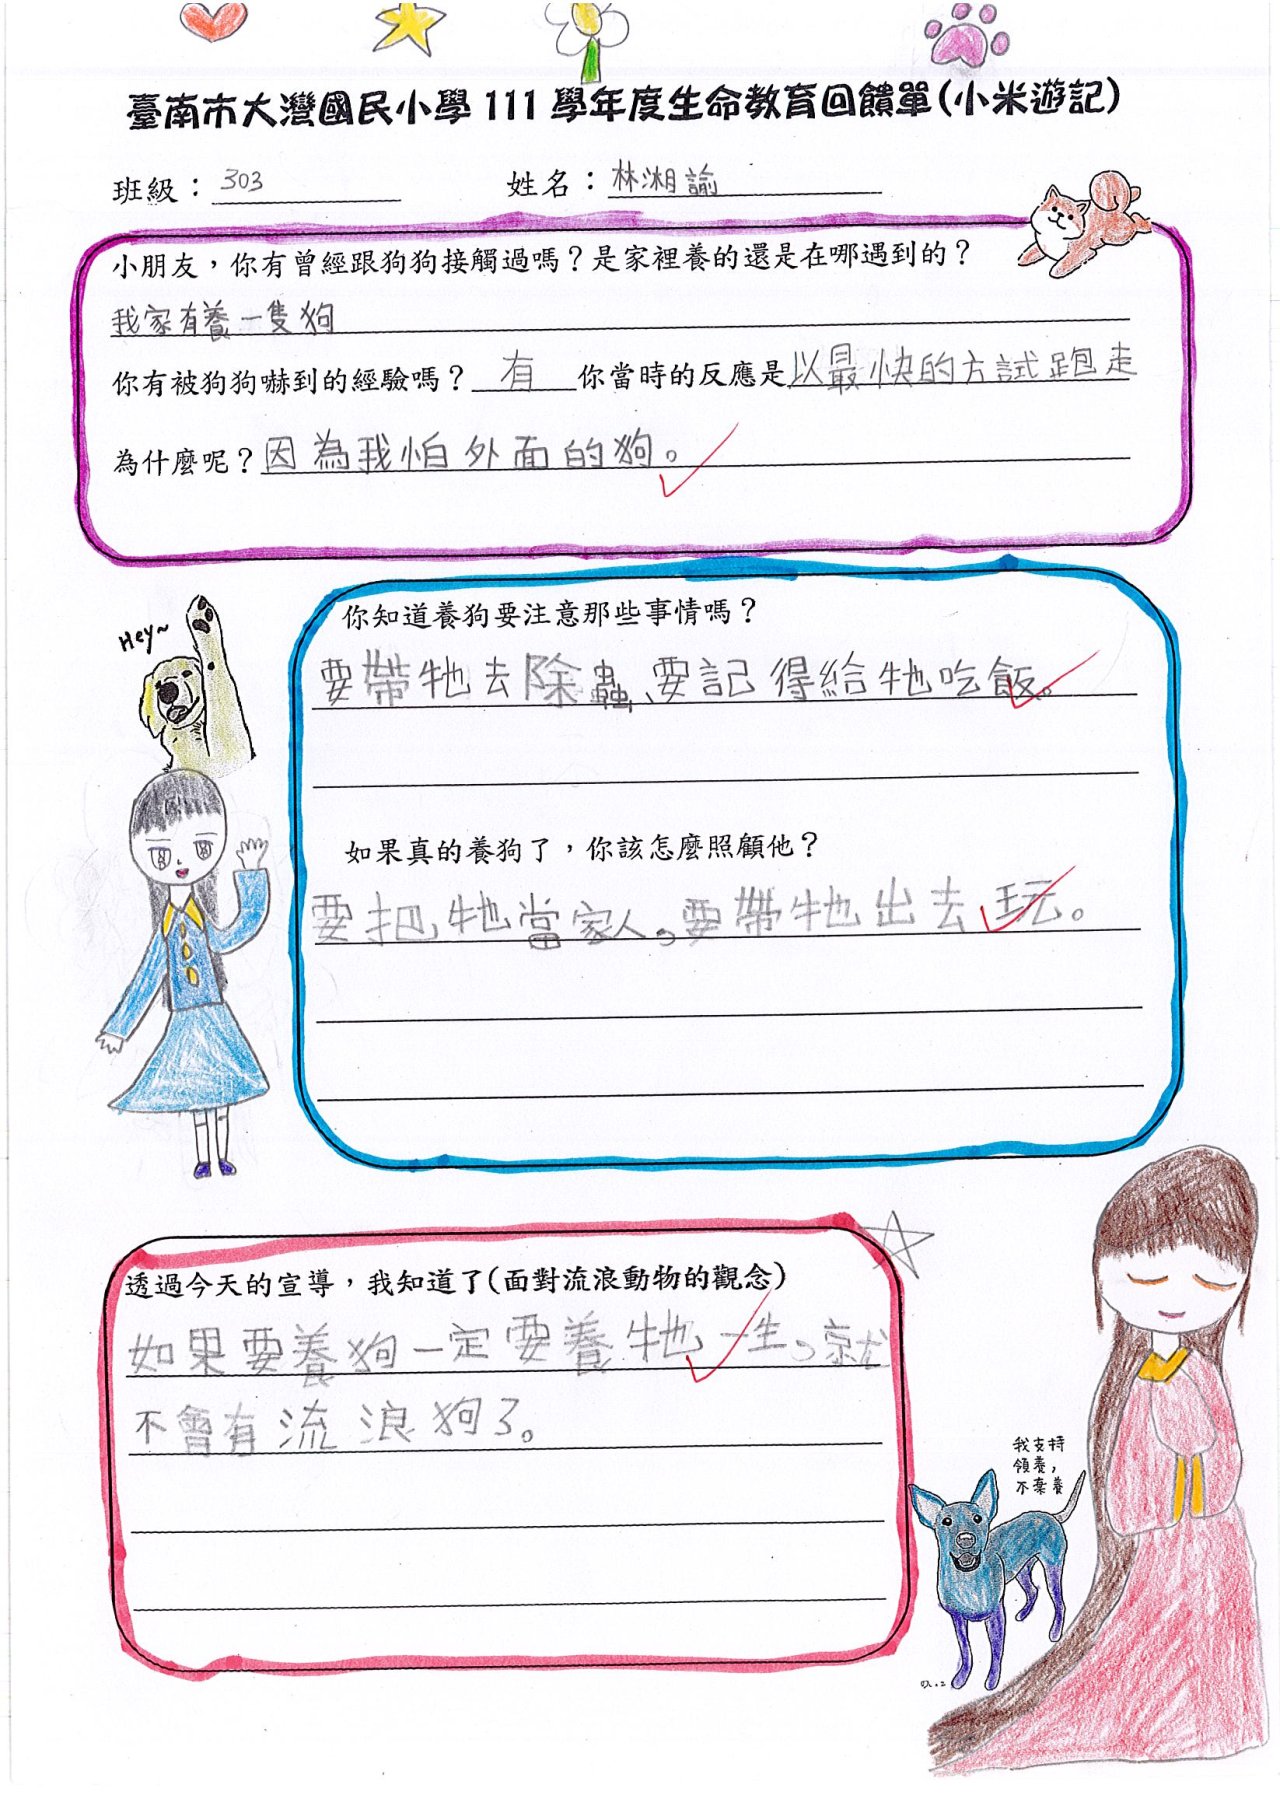 臺南市大灣國民小學 111 學年度生命教育回饋單(小米遊記)
班級：303 姓名：林湘諭
小朋友，你有曾經跟狗狗接觸過嗎？是家裡養的還是在哪遇到的？
我家有養一隻狗
你有被狗狗嚇到的經驗嗎？有 你當時的反應是以最快的方試跑走
為什麼呢？因為我怕外面的狗。
Hey~
你知道養狗要注意那些事情嗎？
要帶牠去除蟲、要記得給牠吃飯。
如果真的養狗了，你該怎麼照顧他？
要把牠當家人,要帶牠出去玩。
透過今天的宣導，我知道了(面對流浪動物的觀念)
如果要養狗一定要養牠一生,就
不會有流浪狗了。
我支持
領養，
不棄養